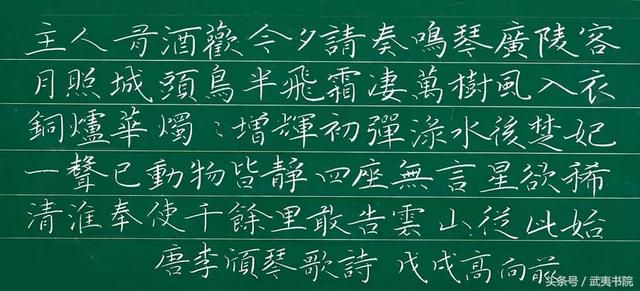 主人有酒歡今夕請奏鳴琴廣陵客
月照城頭烏半飛霜凄萬樹風入衣
銅爐華燭〻增輝初彈淥水後楚妃
一聲已動物皆靜四座無言星欲稀
清淮奉使千餘里敢告雲山從此始
唐李頎琴歌詩 戊戌高向前
头条号 / 武夷书院